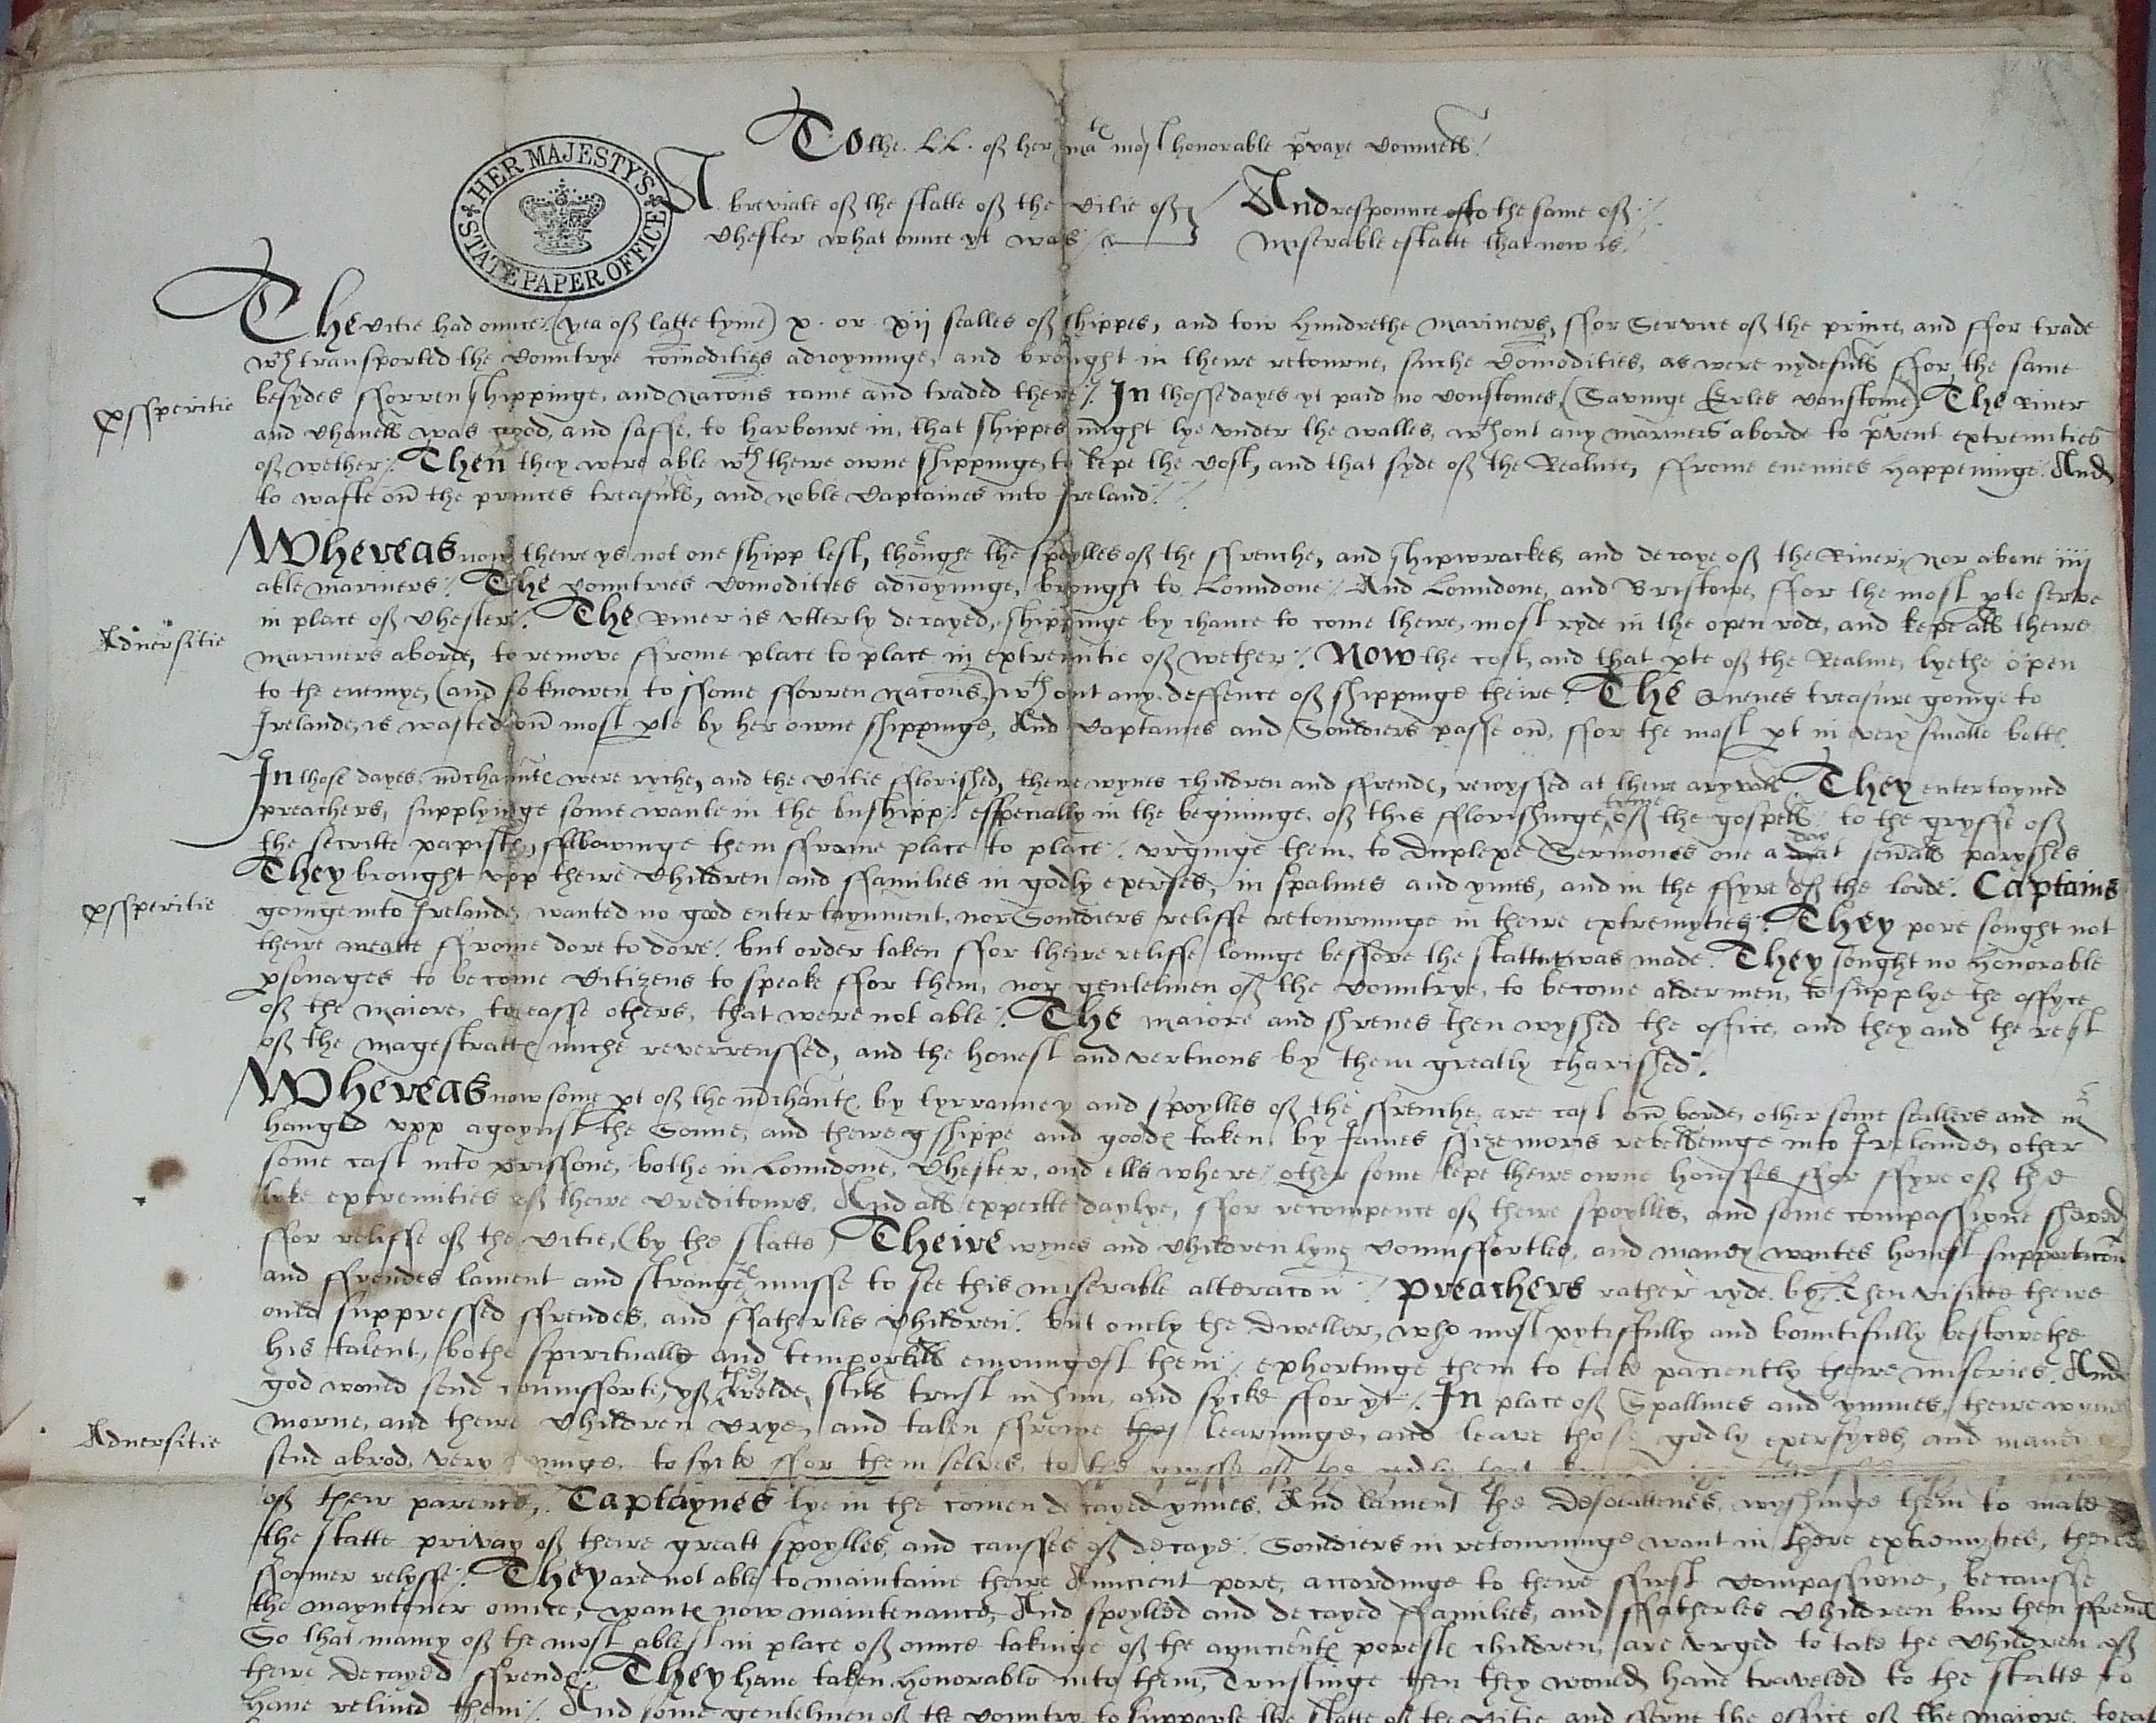 HER MAJESTY'S STATE PAPER OFFICE
To the. LL. of her ma^te most honorable pryvaye Councell
Abreviate of the statte of the Citie of
Chester what onnce yt was
And responnce to the same of
miserable estatte that now is
The Citie had onnce (yea of latte tyme) x. or xij sealles of shippes, and tow hundrethe mariners, ffor Service of the prince, and ffor trade
w^ch transported the Countrye comodities adioyninge, and brought in theire retourne, suche Comodities, as were nydefull ffor the same
besydes fforren shippinge, and nacons came and traded there. In thosse dayes yt paid no Coustomes (Savinge Erles Coustome) The River
pssperitie
and Chanell was good, and saffe, to harboure in, that shippes might lye under the walles, w^thout any mariners aborde to pvent extremities
of wether. Then they were able w^th theire owne shippinge, to kepe the Cost, and that syde of the Realme, ffrome enemies happeninge. And
to wafte ou the princes treasure, and noble Captaines into Ireland
Whereas now theire ys not one shipp left, thoughe the spoylles of the ffrenche, and shipwrackes, and decaye of the River, nor above iiij
able mariners. The Countries Comodities adioyninge, brought to Loundone. And Loundone, and Bristowe, ffor the most pte serve
in place of Chester. The River is utterly decayed, shippinge by chance to come theire, most ryde in the open rode, and kepe all theire
Adversitie
mariners aborde, to remove ffrome place to place in extremitie of wether. Now the cost, and that pte of the Realme, lyethe open
to the enemye, (and so knowen to ssome fforren nacons) w^thout any deffence of shippinge theire. The Quenes treasure goinge to
Irelande, is wafted ou most pte by her owne shippinge, And Captaines and Souldiers passe ou, ffor the most pt in very smalle botte
In those dayes, mchaunte were ryche, and the Citie fflorished, theire wyves children and ffrende, reioyssed at theire aryvall. They entertayned
preachers, supplyinge some wante in the bushipp. esspecially in the begininge, of this fflorishinge tyme of the gospell, to the gryffe of
the secritte papiste, ffollowinge them ffrome place to place. urginge them, to duplexe Sermones one a day at severall paryshes
They brought upp theire Children and ffamilies in godly exersses, in spalmes and ymes, and in the ffyre of the lorde. Captains
pssperitie
goinge into Irelande, wanted no good entertaynment, nor Souldiers reliffe retourninge in theire extremyties. They pore sought not
theire meatte ffrome dore to dore. but order taken ffor theire reliffe longe beffore the statute was made. They sought no honorable
psonages to become Citizens to speake ffor them, nor gentelmen of the Countrye, to become aldermen, to supplye the offyce
of the maiore, to easse others, that were not able. The maiore and shreves then wyshed the office, and they and the rest
of the magestratte muche reverrenssed, and the honest and vertuous by them greatly charished.
Whereas now some pt of the mchaunte by tyrranney and spoylles of the ffrenche, are cast ou borde, other some scallers and
hanged upp agaynst the Sonne, and theire shippe and goode taken by James ffizemoris rebell beinge into Irelande, other
some cast into prissone, bothe in Loundone, Chester, and ells where. other some kepe theire owne housses ffor ffyre of the
lyke extremities of theire Creditours. And all expectte daylye, ffor recompence of theire spoylles, and some compassione shewed
ffor reliffe of the Citie, (by the statte) Theire wyves and Children lyng Comffortles, and maney wantes honest supportacon
and ffrendes lament and strangers musse to see this miserable alteracon. preachers rather ryde by. Then visitte theire
ould suppressed ffrendes, and ffatherles Children. but onely the Dweller, who most pytiffully and bountifully bestowethe
his talent, bothe spirituall and temporall emoungest them, exhortinge them to take paciently theire miseries. And
god would send comfforte, yf they wolde, still trust in him, and sycke ffor yt. In place of Spallmes and ymnes, theire wyves
morne, and theire Children Crye, and taken ffrome learninge, and leave those godly exersyces, and maney
Adversitie
send abrod, very to sycke ffor them selves, to the gryffe of
of their parence, Captaynes lye in the comen decayed ynnes. And lament the desolattenes, wyshinge them to make
the statte privay of theire greatt spoylles, and causses of decaye. Souldiers in retourninge want in there extremyties, theire
fformer relyffe. They are not able to maintaine theire Anncient pore, accordinge to theire ffirst Compassione, becausse
the mayntener onnce, wante now maintenance, And spoylled and decayed ffamilies, and ffatherles Children burthen ffrende
So that maney of the most ablest in place of onnce takinge of the aynciente poreste children, are urged to take the Children of
theire decayed ffrende. They have taken honorable into them, Trustinge then they would have traveled to the statte to
have relived them. And some gentelmen of the Countrey, to supporte the statte of the Citie, and sserve the office of the maiore, to ea